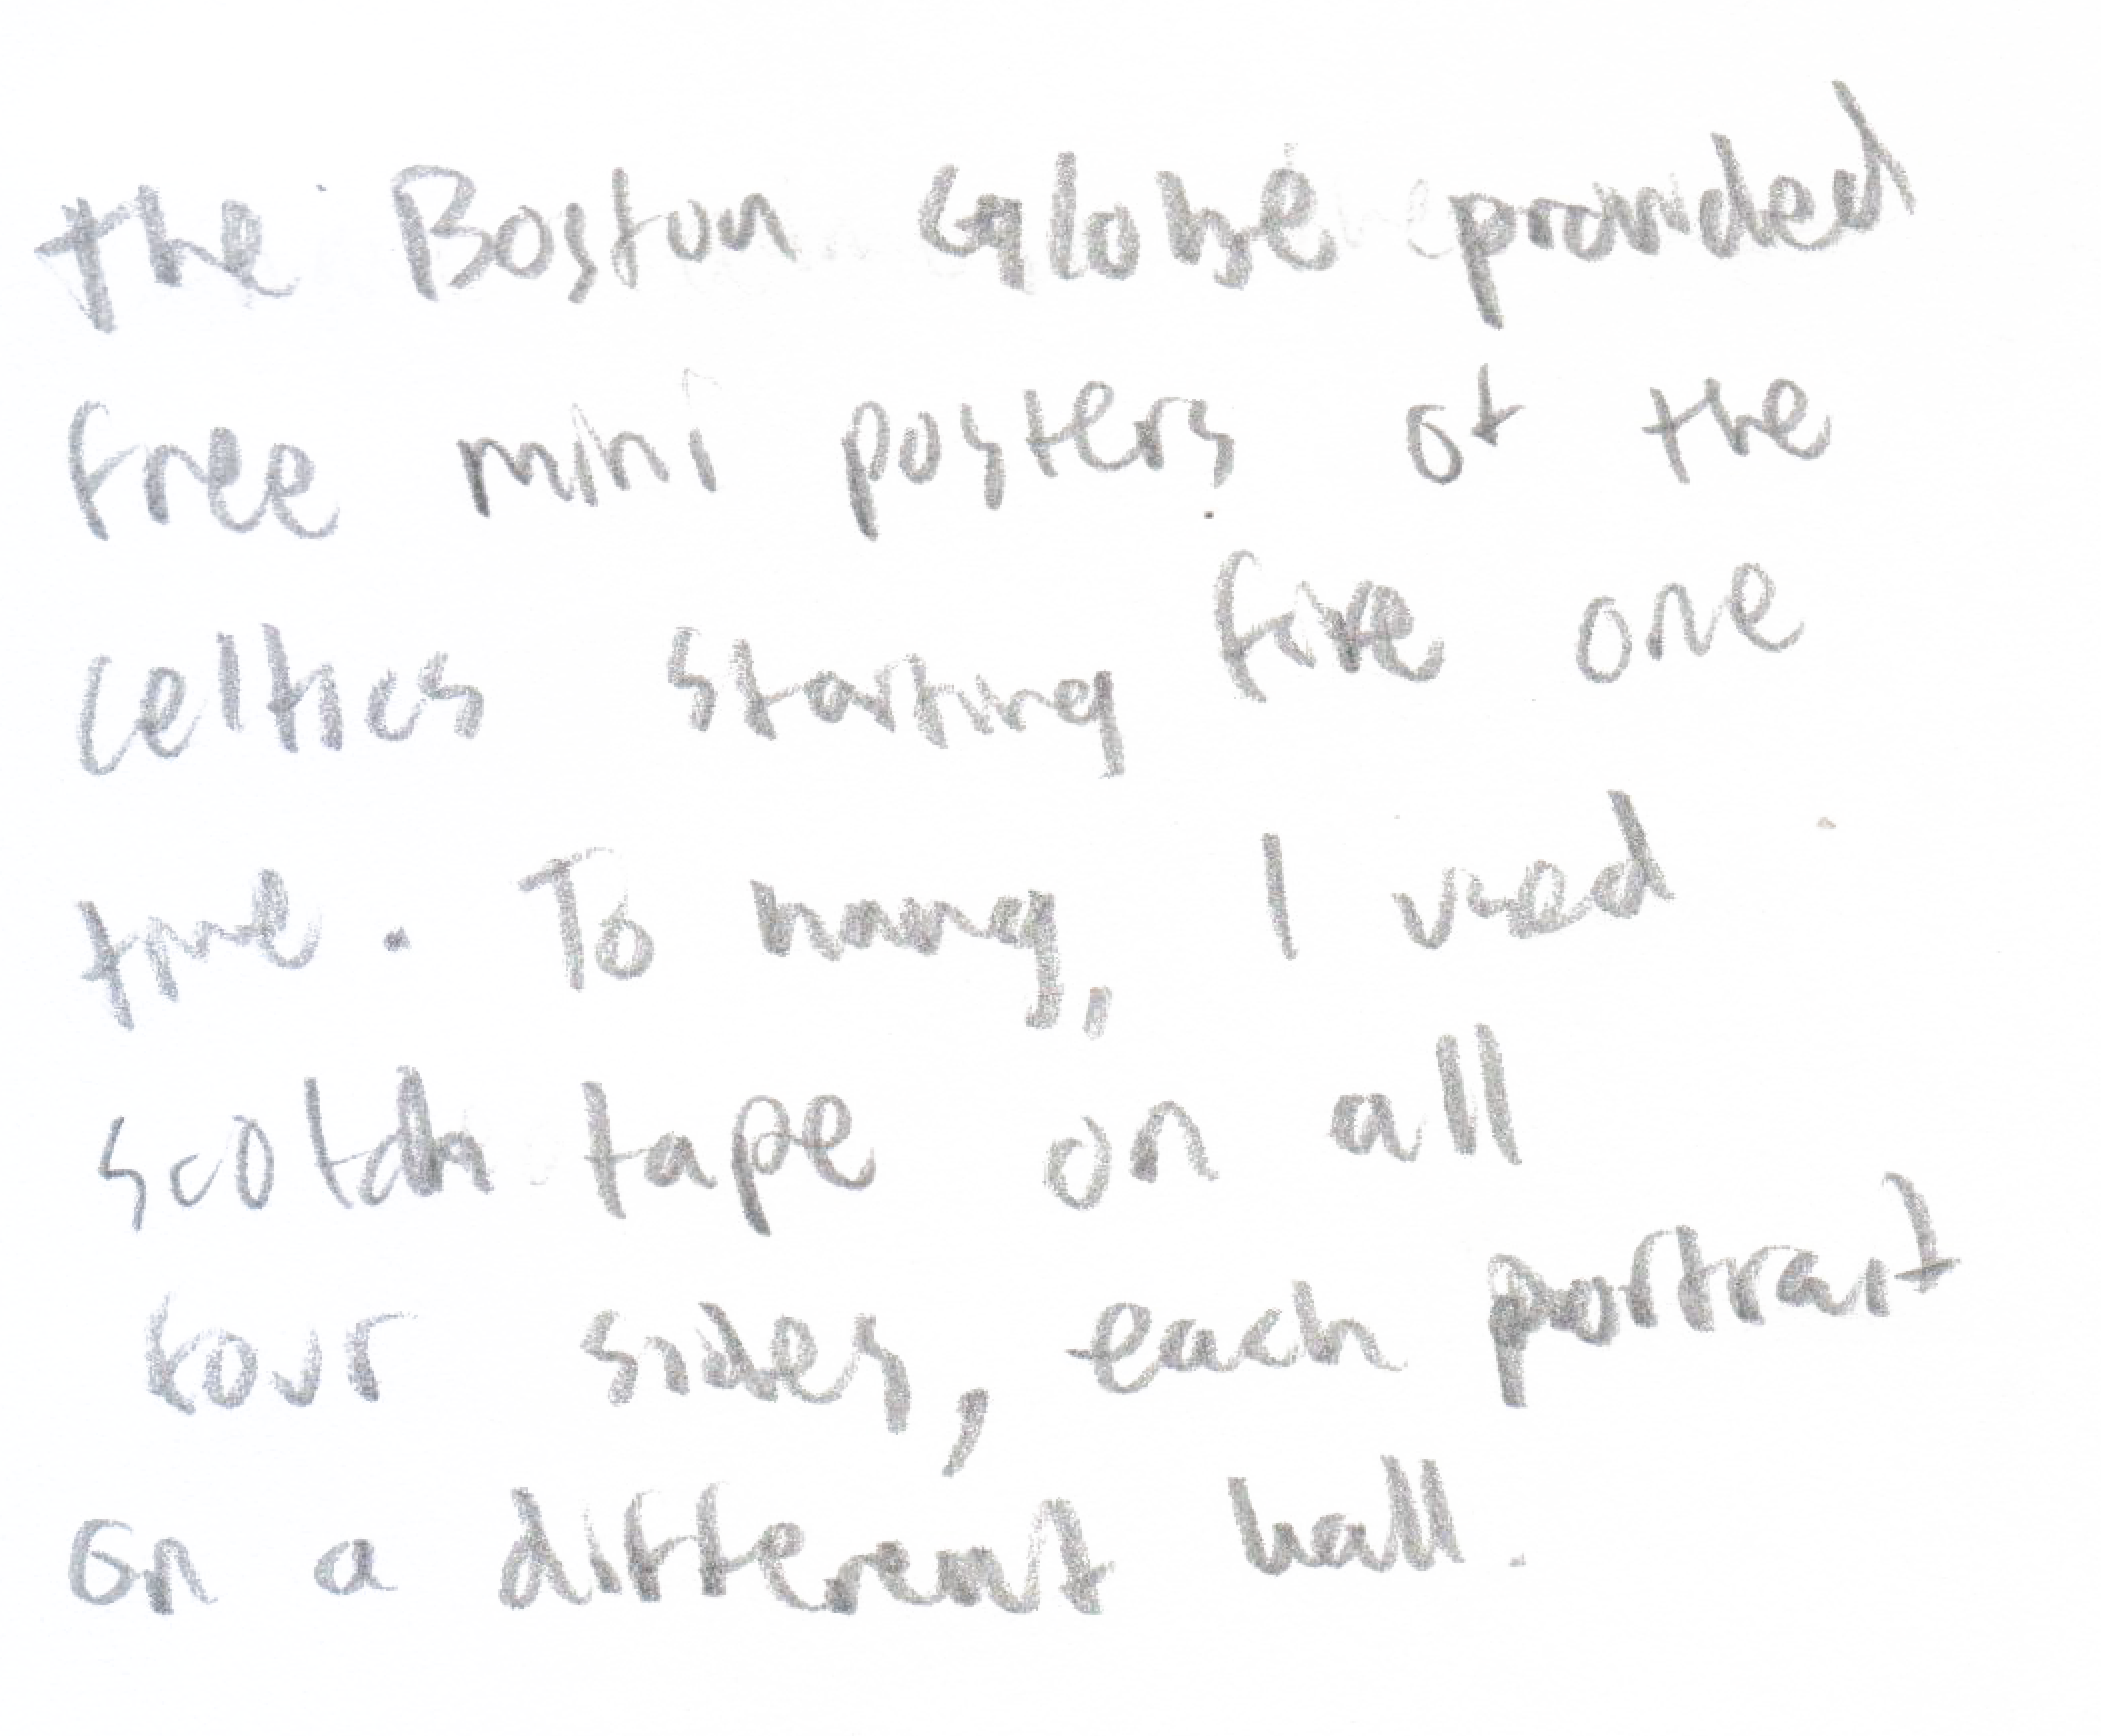 the Boston Globe provided
free mini posters of the
Celtics starting five one
time. To hang, I used
scotch tape on all
four sides, each portrait
on a different wall.